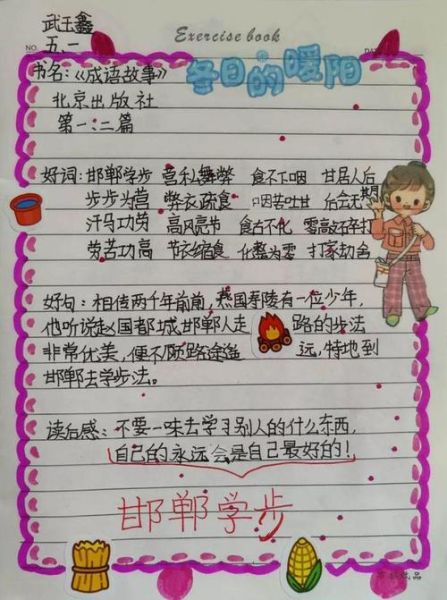 武玉鑫
Exercise book
五、一
NO.
书名:《成语故事》
冬日的暖阳
北京出版社
第一、二篇
好词:邯郸学步 营私舞弊 食不下咽 甘居人后
步步为营 弊衣疏食 咽苦吐甘 后会无期
汗马功劳 高风亮节 食古不化
劳苦功高 节衣缩食 化整为零 打家劫舍
好句:相传两千年前前,燕国寿陵有一位少年,
他听说赵国都城邯郸人走路的步法
非常优美,便不顾路途遥远,特地到
邯郸去学步法。
读后感:不要一味去学习别人的什么东西,
自己的永远会是自己最好的!
邯郸学步